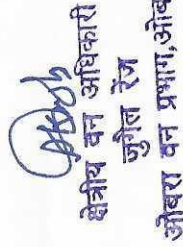 क्षेत्रीय वन अधिकारी
जुगैल रेंज
ओबरा वन प्रभाग,ओब